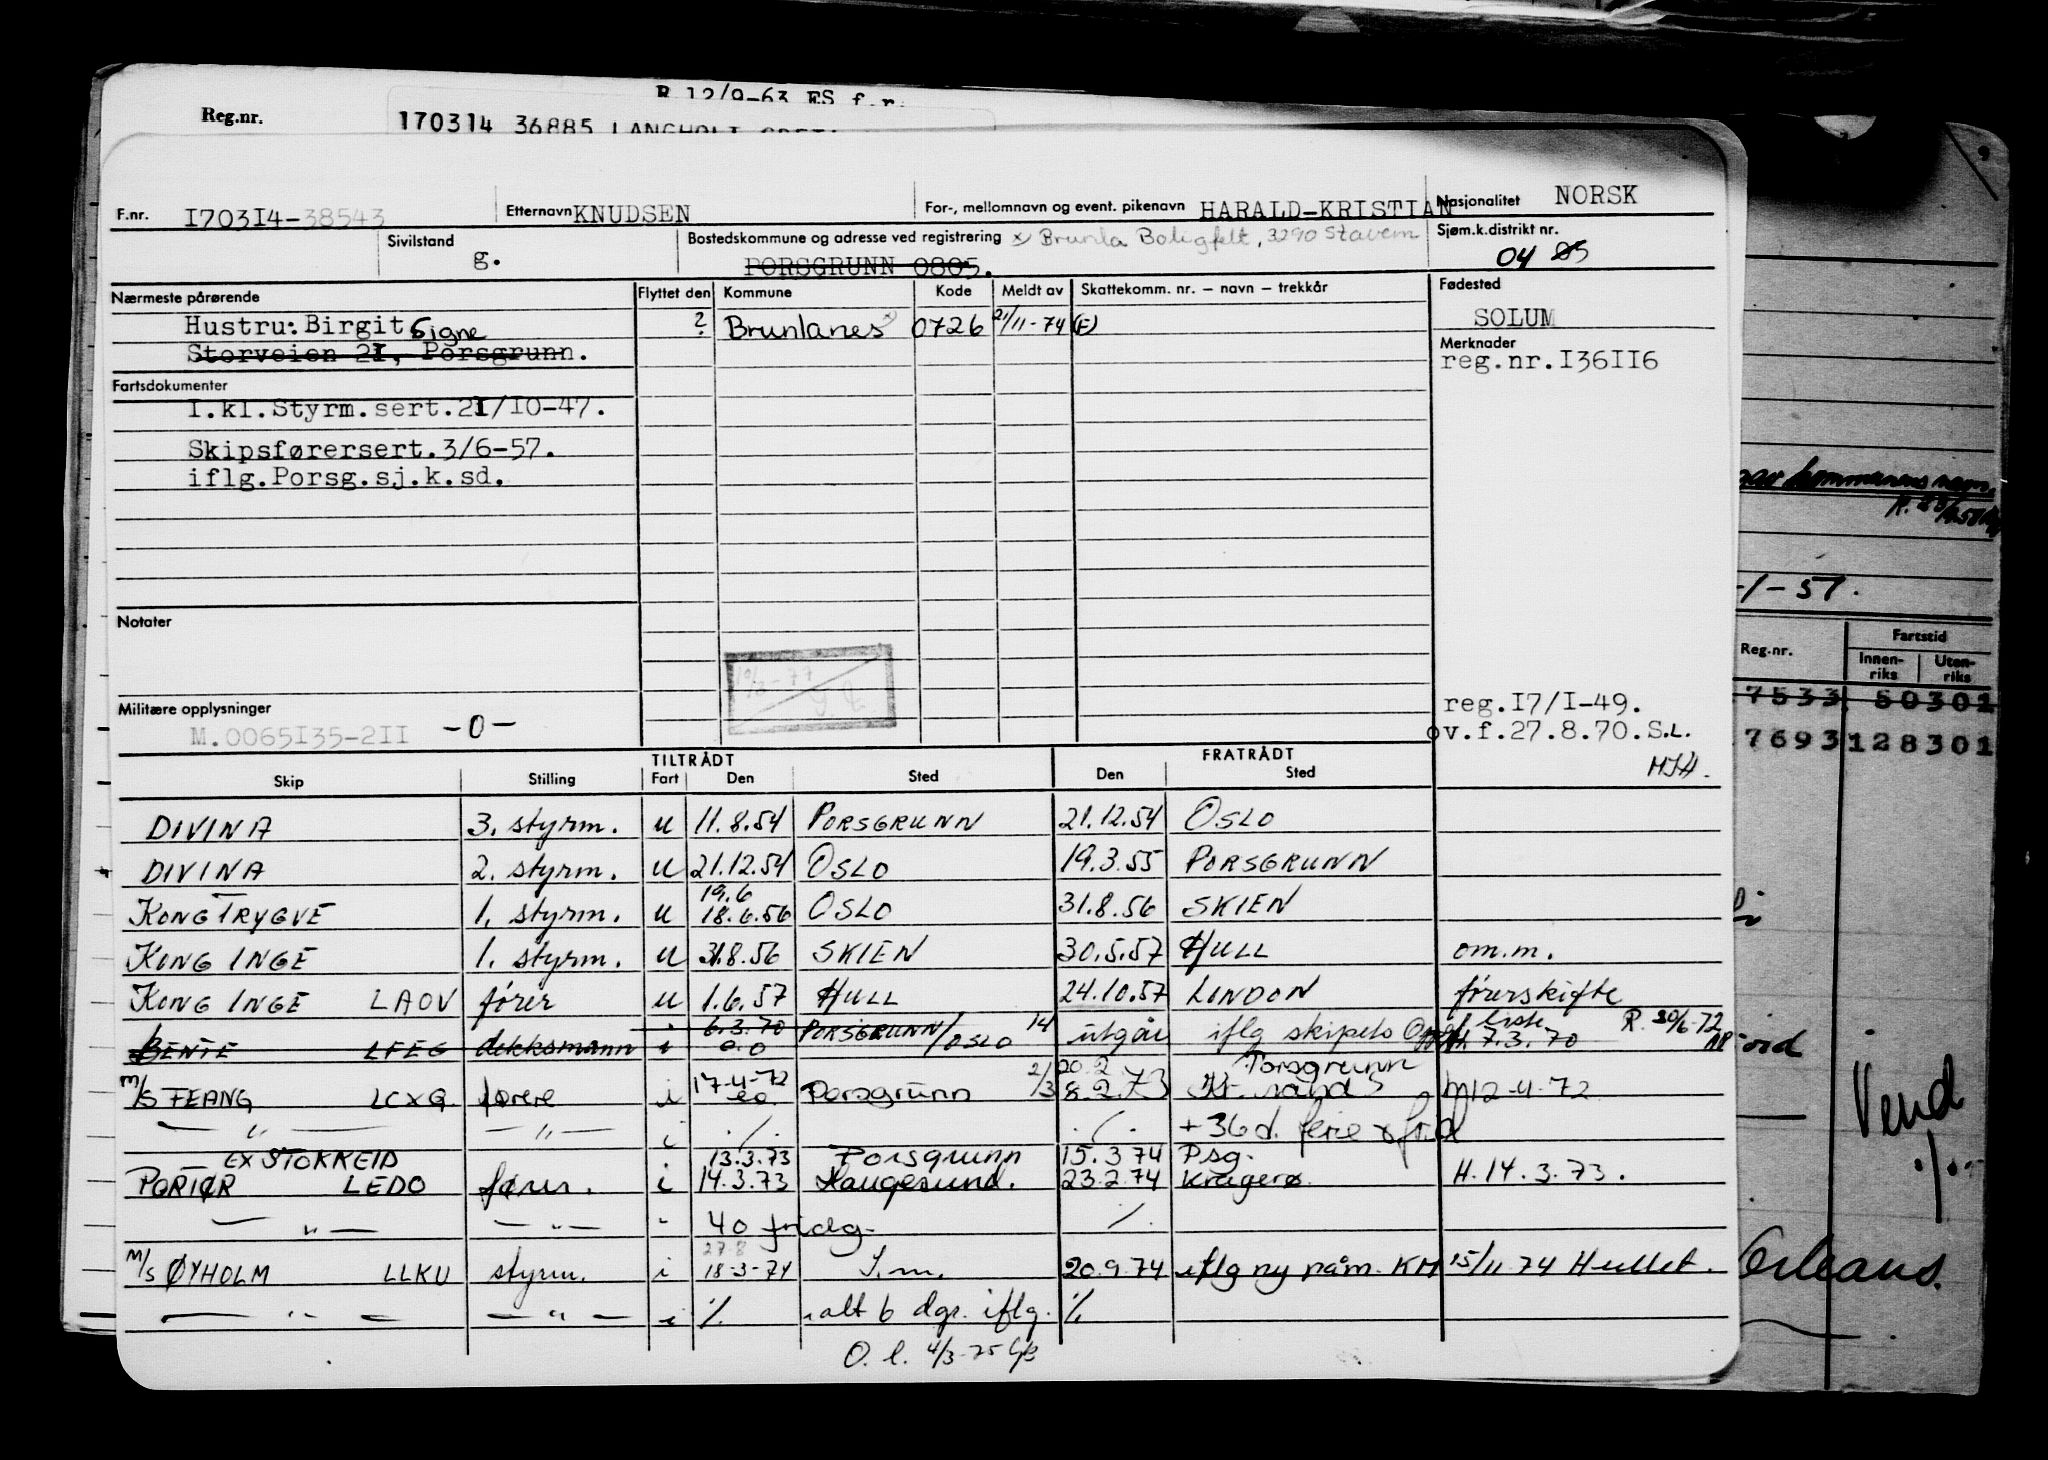 R 12/9-63 ES f.r.
Reg.nr.
170314 36885
F.nr. 170314-38543 Etternavn KNUDSEN For-, mellomnavn og event. pikenavn HARALD-KRISTIAN Nasjonalitet NORSK
Sivilstand g. Bostedskommune og adresse ved registrering x/ Brunla Boligfelt, 3290 Stavern Sjøm.k.distrikt nr.
PORSGRUNN 0805. 04 05
Nærmeste pårørende Flyttet den Kommune Kode Meldt av Skattekomm. nr. – navn – trekkår Fødested
Hustru: Birgit Signe ? Brunlanes x 0726 21/11-74 (F) SOLUM
Storveien 21, Porsgrunn. Merknader
reg.nr.I36II6
Fartsdokumenter
I.kl.Styrm.sert.21/IO-47.
Skipsførersert.3/6-57.
iflg.Porsg.sj.k.sd.
Notater
Militære opplysninger
M.0065I35-2II -0-
reg.I7/I-49.
ov.f.27.8.70.S.L.
MJH.
TILTRÅDT FRATRÅDT
Skip Stilling Fart Den Sted Den Sted
DIVINA 3. styrm. u 11.8.54 PORSGRUNN 21.12.54 OSLO
DIVINA 2. styrm. u 21.12.54 OSLO 19.3.55 PORSGRUNN
19.6
KONG TRYGVE 1. styrm. u 18.6.56 OSLO 31.8.56 SKIEN
KONG INGE 1. styrm. u 31.8.56 SKIEN 30.5.57 HULL om.m.
KONG INGE LAOV fører u 1.6.57 HULL 24.10.57 LONDON førerskifte
BENTE LFEG dekksmann i 6.3.70 PORSGRUNN/OSLO 14 utgår iflg skipets liste H. 7.3.70 R. 30/6-72
20.2 Porsgrunn
M/S FEANG LCXQ førere i 17-4-72 Porsgrunn 2/3 8.2.73 Kr.sand S M 12-4-72
— " — — " — i ./. ./. + 36 d. ferie & frid
EX STOKKEID 13.3.73 Porsgrunn 15.3.74 Psg.
PORTØR LEDO fører. i 14.3.73 Haugesund. 23.2.74 Kragerø H. 14.3.73.
— " — — " — " 40 fridg. ./.
27.8
M/S ØYHOLM LLKU styrm. i 18-3-74 S.m. 20.9.74 iflg ny påm. KM 15/11 74 Hullet.
— " — — " — i ./. ialt 6 dgr. iflg. ./.
O. l. 4/3-75
R.
-1-57.
Reg.nr. Fartstid
Innen-riks Uten-riks
7533 50301
7693 128301
Vend
./..
Orleans.